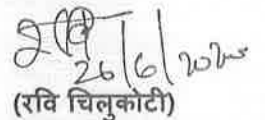 रवि
26/6/2025
(रवि चिलुकोटी)